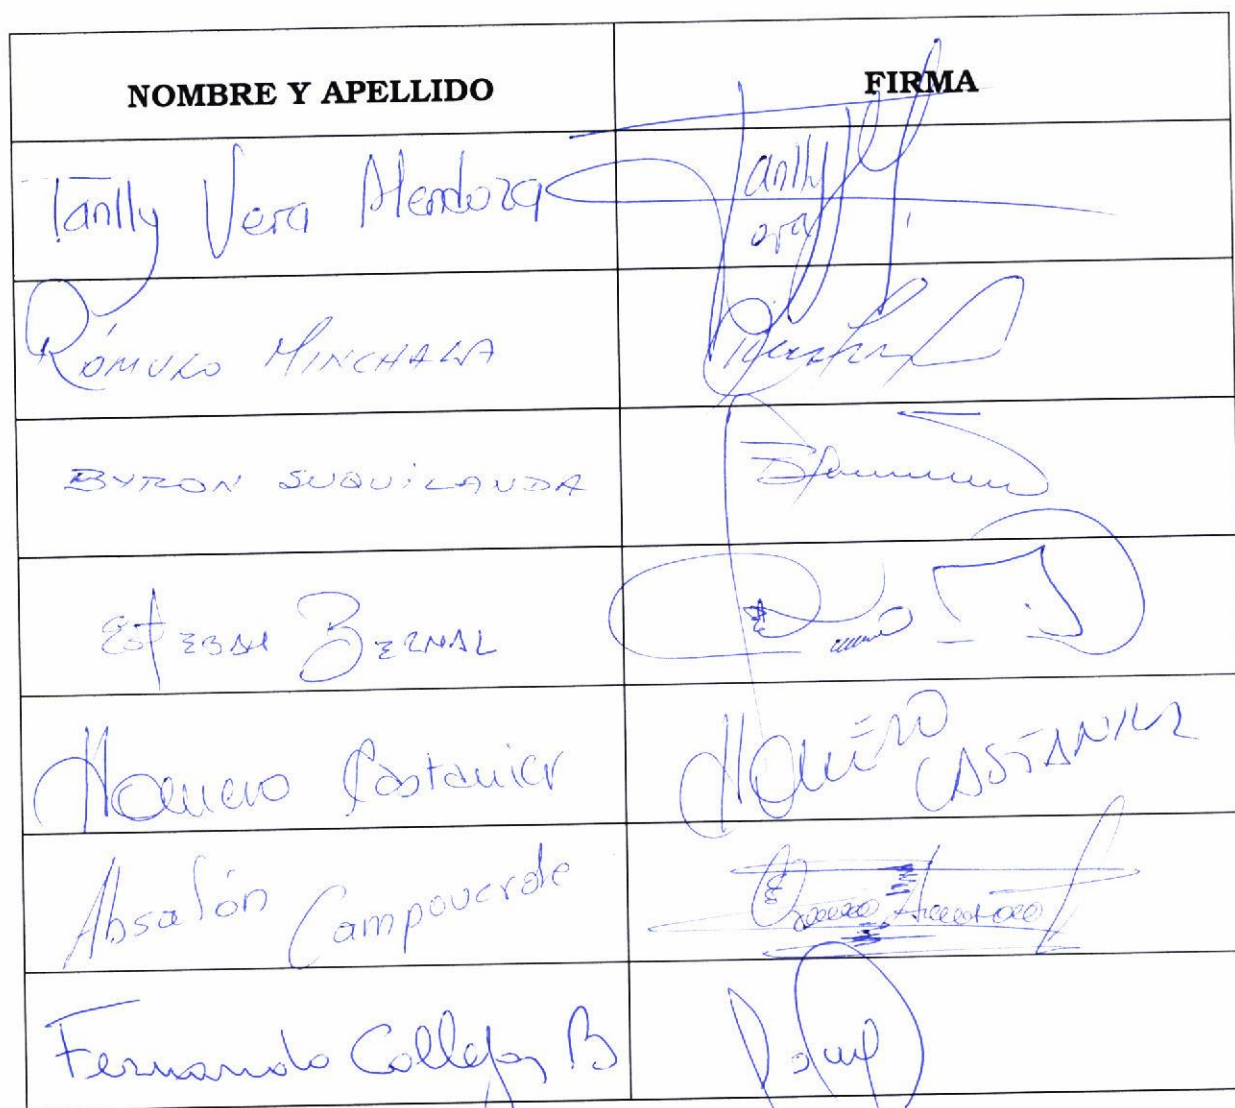 NOMBRE Y APELLIDO FIRMA
Tanlly Vera Mendoza Tanlly Vera
RÓMULO MINCHALA
BYRON SUQUILANDA
ESTEBAN BERNAL
Homero Castanier HOMERO CASTANIER
Absalón Campoverde
Fernando Callejas B